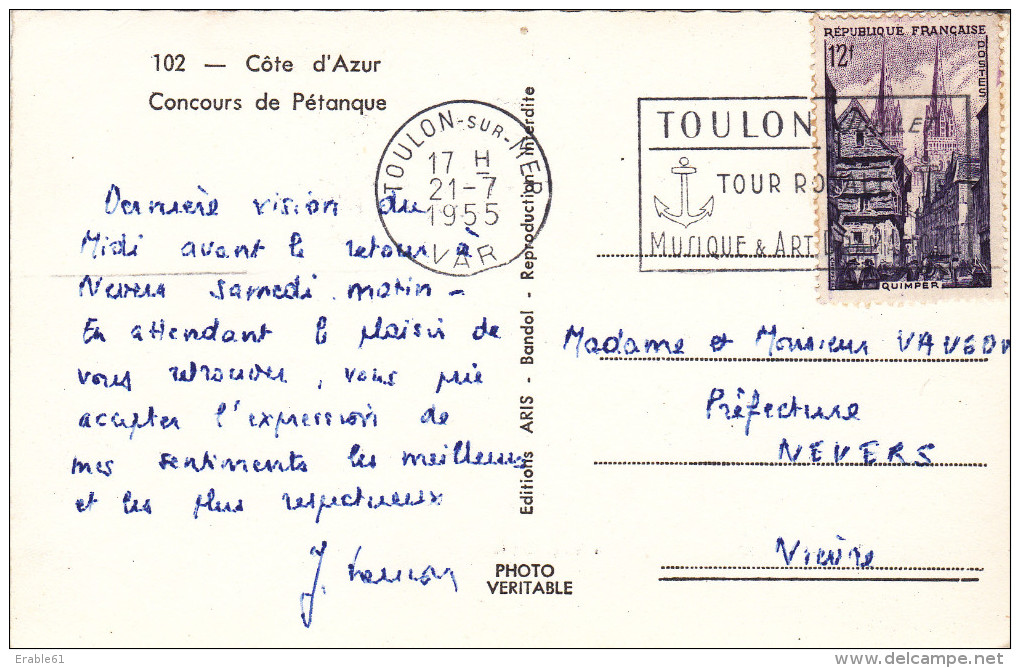 102 — Côte d'Azur
Concours de Pétanque
Dernière vision du
Midi avant le retour à
Nevers samedi matin -
En attendant le plaisir de
vous retrouver, vous prie
accepter l'expression de
mes sentiments les meilleurs
et les plus respectueux
J.
PHOTO
VERITABLE
Editions ARIS - Bandol - Reproduction interdite
TOULON-SUR-MER
17 H
21-7
1955
VAR
TOULON JUILLET
TOUR ROYALE
MUSIQUE & ART
RÉPUBLIQUE FRANÇAISE
12f
POSTES
QUIMPER
Madame et Monsieur
Préfecture
NEVERS
Nièvre
Erable61
delcampe.net